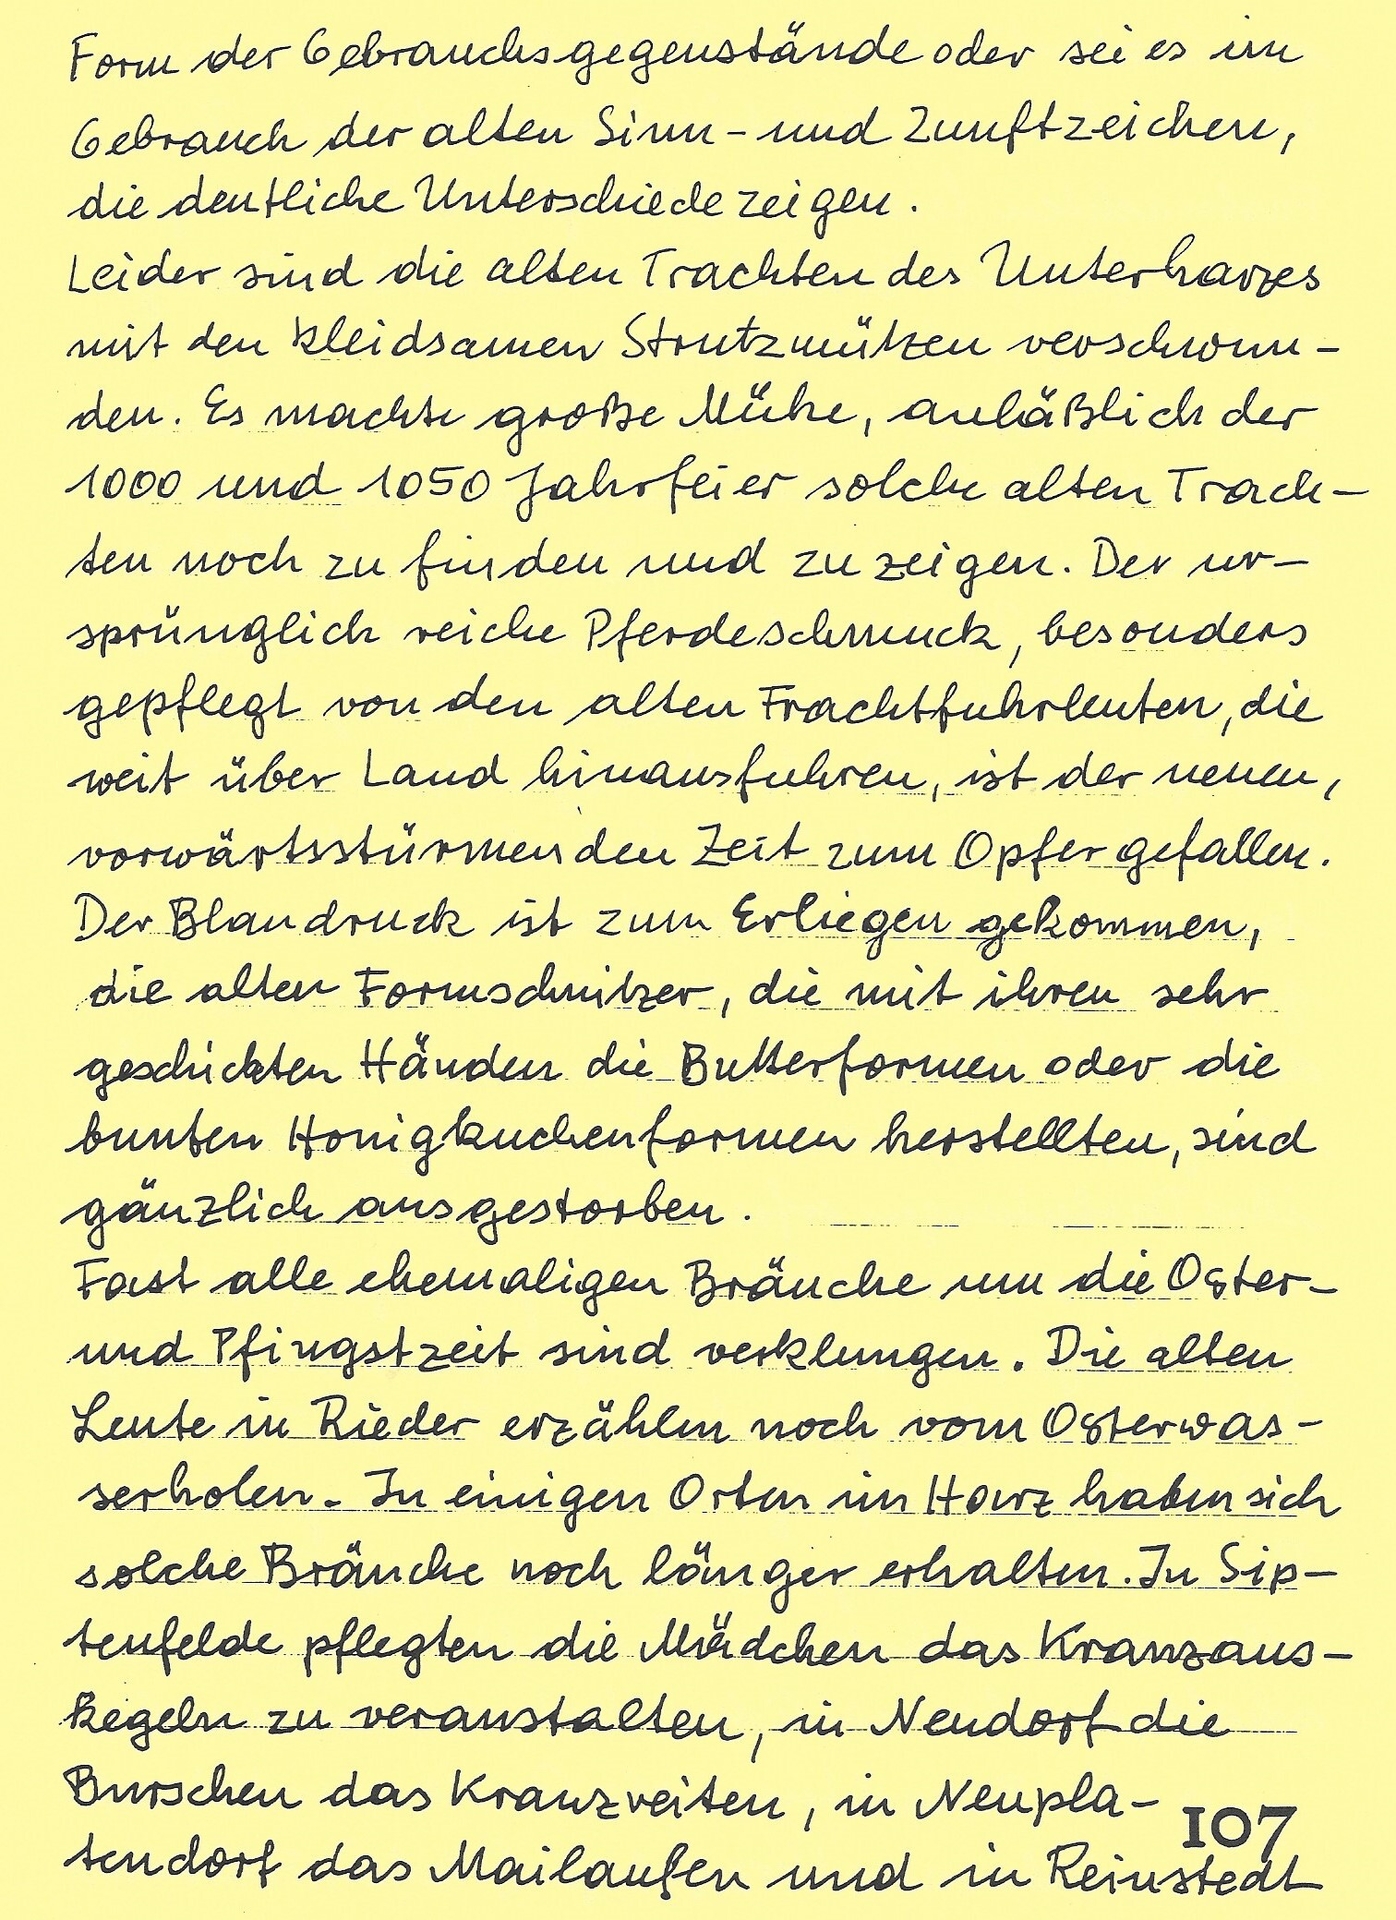 Form der Gebrauchsgegenstände oder sei es im
Gebrauch der alten Sinn- und Zunftzeichen,
die deutliche Unterschiede zeigen.
Leider sind die alten Trachten des Unterharzes
mit den kleidsamen Strutzmützen verschwun-
den. Es machte große Mühe, anläßlich der
1000 und 1050 Jahrfeier solche alten Trach-
ten noch zu finden und zu zeigen. Der ur-
sprünglich reiche Pferdeschmuck, besonders
gepflegt von den alten Frachtfuhrleuten, die
weit über Land hinausfuhren, ist der neuen,
vorwärtsstürmenden Zeit zum Opfer gefallen.
Der Blaudruck ist zum Erliegen gekommen,
die alten Formschnitzer, die mit ihren sehr
geschickten Händen die Butterformen oder die
bunten Honigkuchenformen herstellten, sind
gänzlich ausgestorben.
Fast alle ehemaligen Bräuche um die Oster-
und Pfingstzeit sind verklungen. Die alten
Leute in Rieder erzählen noch vom Osterwas-
serholen. In einigen Orten im Harz haben sich
solche Bräuche noch länger erhalten. In Sip-
tenfelde pflegten die Mädchen das Kranzaus-
kegeln zu veranstalten, in Neudorf die
Burschen das Kranzreiten, in Neupla-
107
tendorf das Mailaufen und in Reinstedt